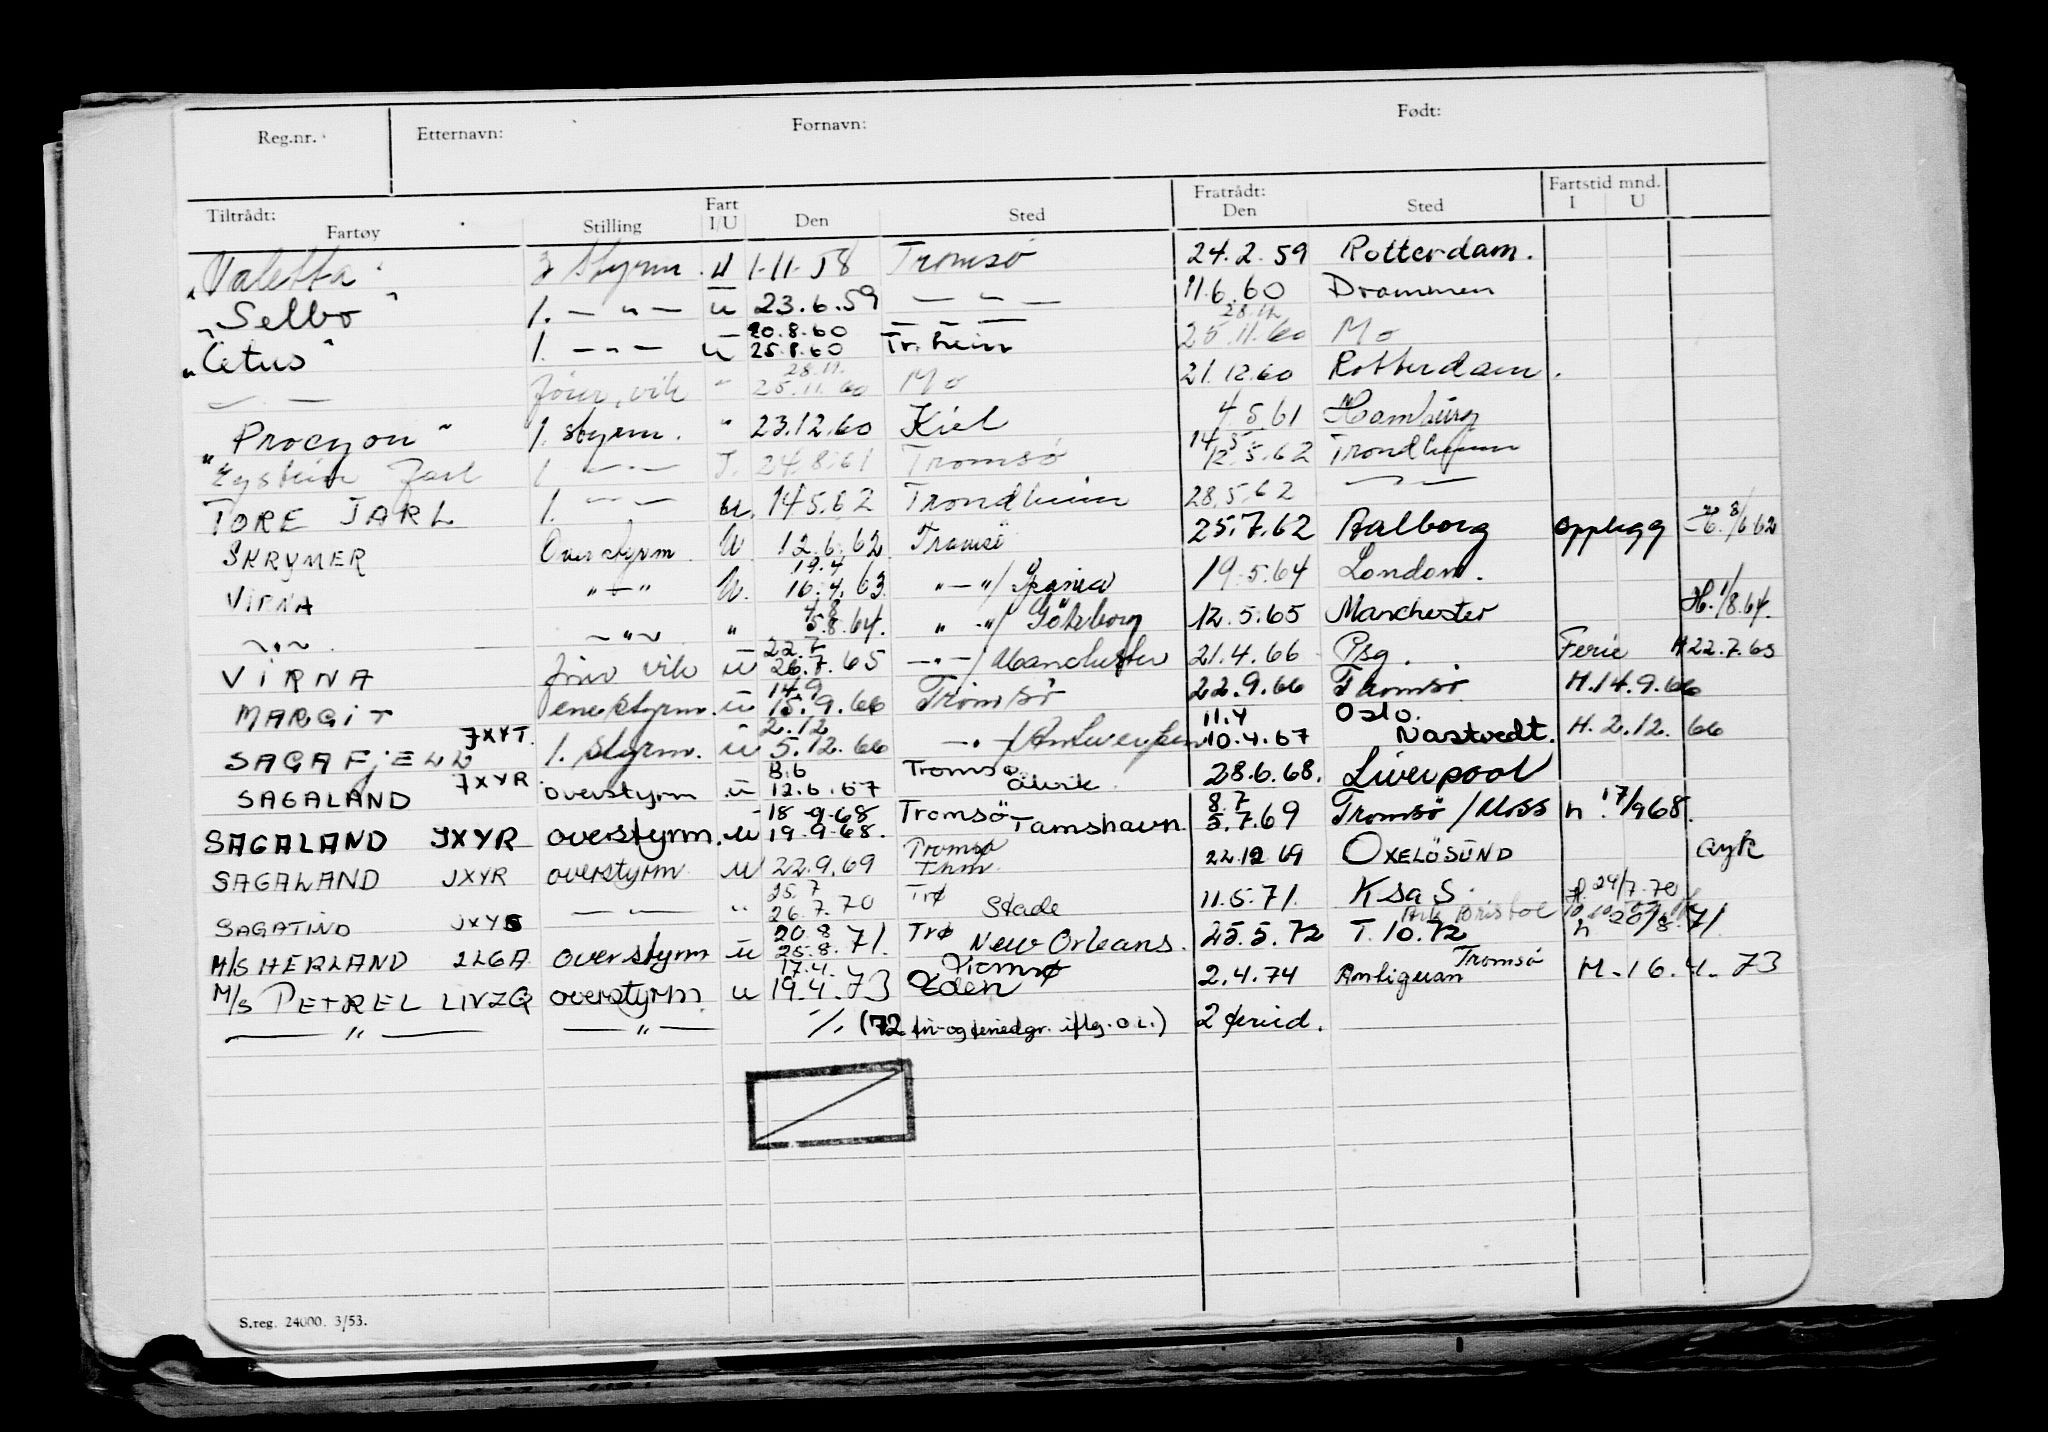 Reg.nr. Etternavn: Fornavn: Født:
Tiltrådt: Fratrådt: Fartstid mnd.
Fartøy Stilling Fart I/U Den Sted Den Sted I U
"Valetta" 3 Styrm. U 1-11-58 Tromsö 24.2.59 Rotterdam.
"Selbo" 1. — " — u 23.6.59 — " — 11.6.60 Drammen
20.8.60 — — — 28.12
"Cetus" 1. — " — u 25.8.60 Tr.heim 25.11.60 Mo
28.11.
— " — " 25.11.60 Mo 21.12.60 Rotterdam.
"Procyon" 1. styrm. " 23.12.60 Kiel 4.5.61 Hamburg
14/5
"Eystein Jarl 1 — " — I. 24.8.61 Tromsö 12.5.62 Trondheim
TORE JARL 1. — " — u. 14.5.62 Trondheim 28.5.62 — " —
SKRYMER Overstyrm. U 12.6.62 Tromsö 25.7.62 Aalborg opplegg 8/6 62
19.4
VIRNA " — " U. 16.4.63 " — "/ Spania 19.5.64 London.
4.8
— " — — " — " 5.8.64. " — "/ Göteborg 12.5.65 Manchester H. 1/8.64.
22.7
VIRNA vik u 26.7.65 — " — / Manchester 21.4.66 Psg. Ferie H 22.7.65
14.9
MARGIT enestyrm. u 15.9.66 Tromsö 22.9.66 Tromsö H.14.9.66
2.12 11.4 Oslo.
SAGAFJELL JXYT. 1. styrm. u 5.12.66 — " — / Antwerpen 10.4.67 Nastvedt. H. 2.12. 66
8.6 Tromsø
SAGALAND JXYR overstyrm u 12.6.67 Ålvik. 28.6.68. Liverpool
18-9-68 8.7
SAGALAND JXYR overstyrm. u 19.9-68. Tromsö Tamshavn. 5.7.69 Tromsö / Moss h. 17/9 68.
Tromsø
SAGALAND JXYR overstyrm. u 22.9.69 22.12 69 OXELÖSUND
25.7
SAGATIND JXYS — " — " 26.7.70 Trø Stade 11.5.71. KSaS. H. 24/7-70
20.8
M/S HERLAND 2LGA overstyrm u 25.8.71. Trø New Orleans. 25.5.72 T. 10.72 h 20/8.71.
17.4. Tromsø Tromsö
M/S PETREL LIVZQ overstyrm u 19.4.73 Eden 2.4.74 Antiguan H. 16.4.73
— " — — " — % (72 fri-og feriedgr. iflg. o.l.) 2 feried.
S.reg. 24000. 3/53.